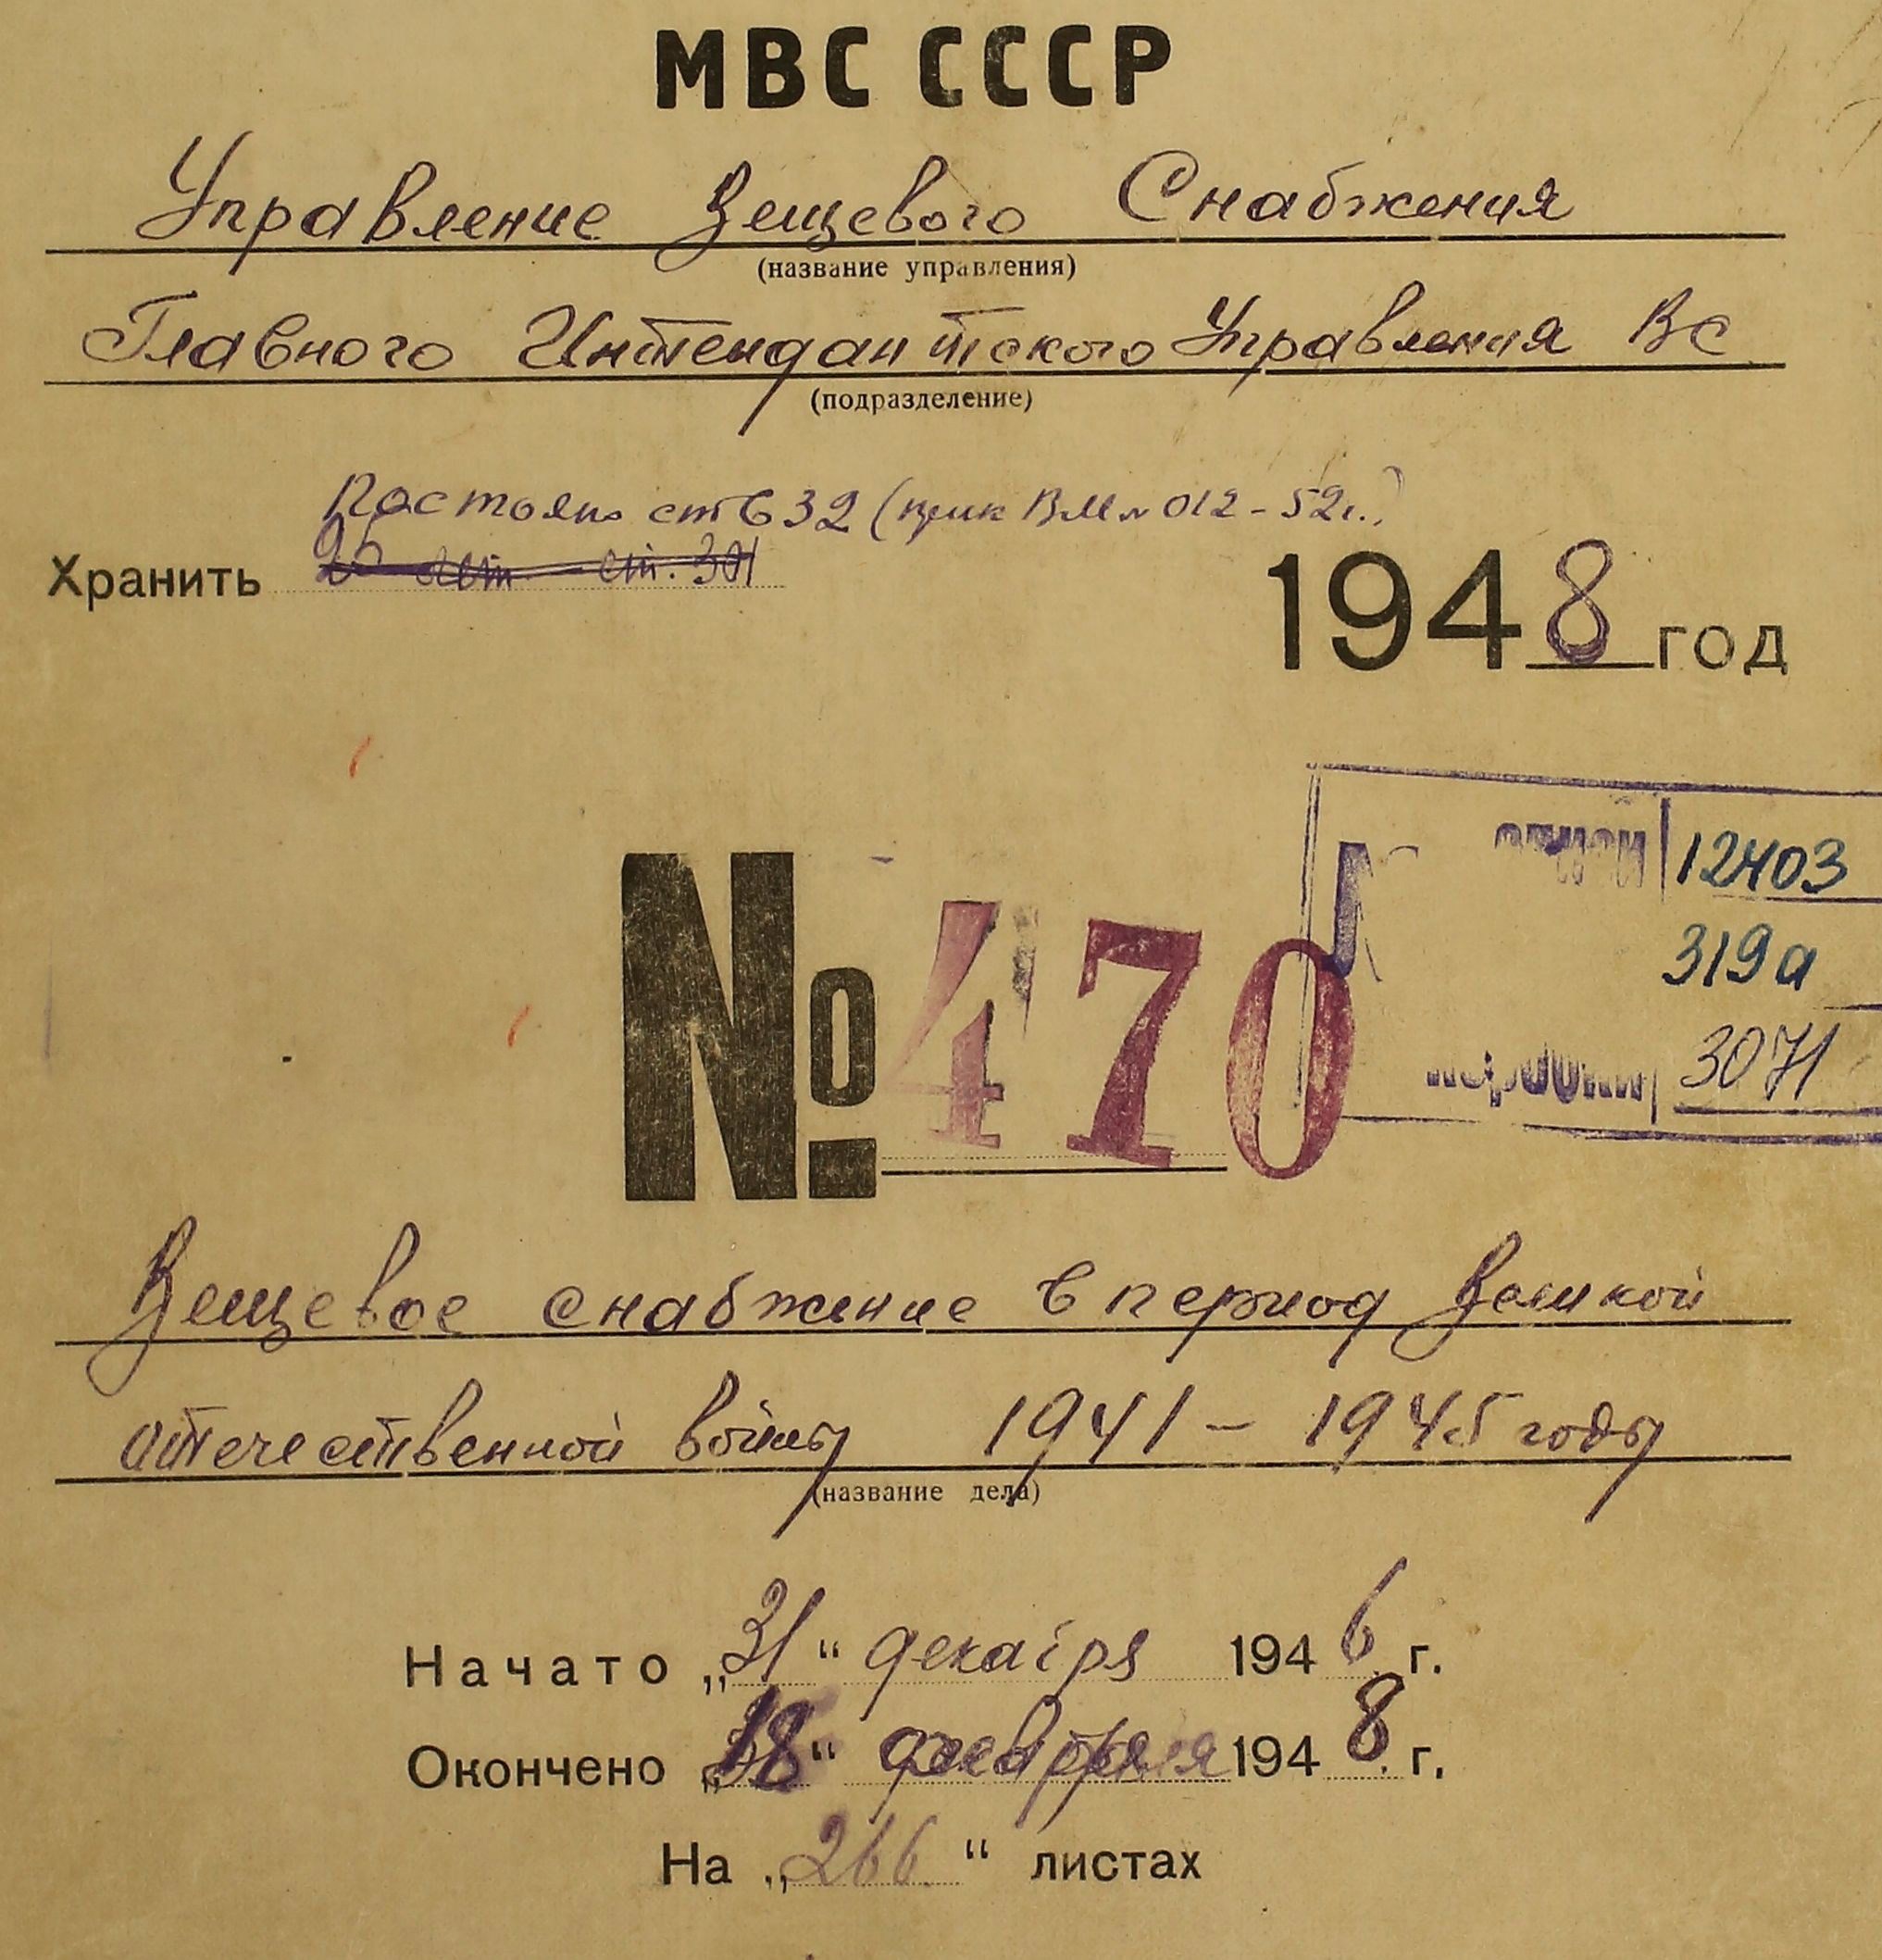 МВС СССР
Управление Вещевого Снабжения
(название управления)
Главного Интендантского Управления ВС
(подразделение)
Постоян. ст 632 (прик ВМ № 012-52г.)
Хранить 25 лет ст. 301
1948 год
описи 12403
319а
коробки 3071
№ 470
Вещевое снабжение в период Великой
отечественной войны 1941 - 1945 годы
(название дела)
Начато „31“ декабря 1946 г.
Окончено „18“ 1948 г.
На „266“ листах